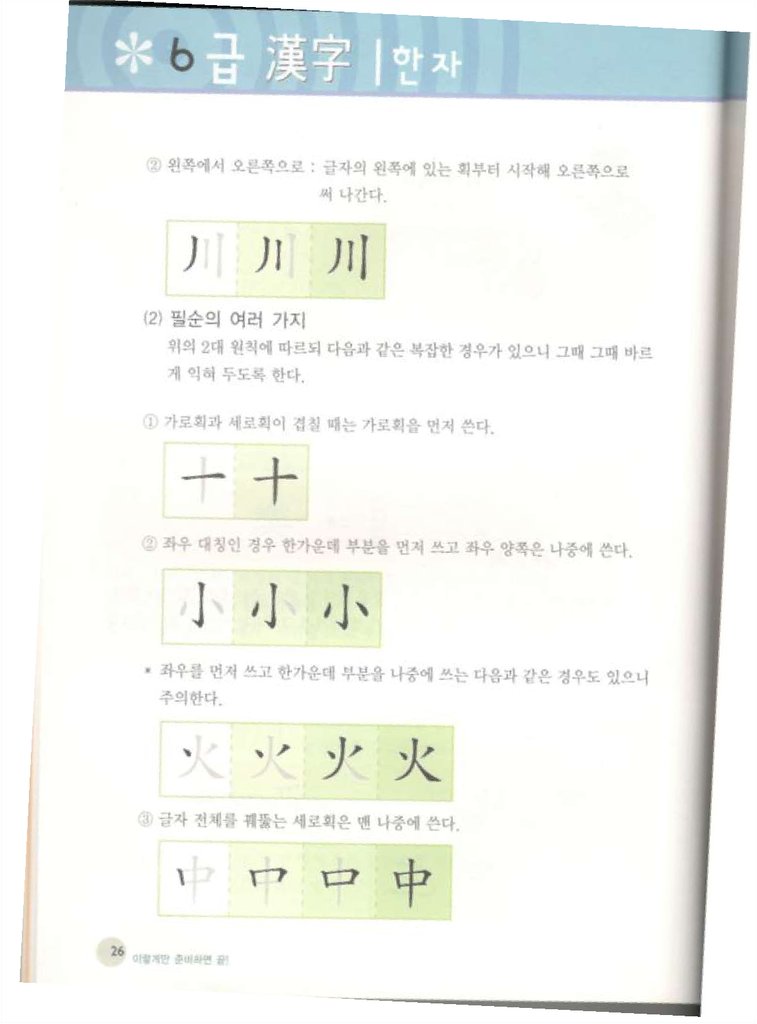 * 6급 漢字 | 한자
② 왼쪽에서 오른쪽으로 : 글자의 왼쪽에 있는 획부터 시작해 오른쪽으로
써 나간다.
丿 川 川
(2) 필순의 여러 가지
위의 2대 원칙에 따르되 다음과 같은 복잡한 경우가 있으니 그때 그때 바르
게 익혀 두도록 한다.
① 가로획과 세로획이 겹칠 때는 가로획을 먼저 쓴다.
一 十
② 좌우 대칭인 경우 한가운데 부분을 먼저 쓰고 좌우 양쪽은 나중에 쓴다.
小 小 小
* 좌우를 먼저 쓰고 한가운데 부분을 나중에 쓰는 다음과 같은 경우도 있으니
주의한다.
火 火 火 火
③ 글자 전체를 꿰뚫는 세로획은 맨 나중에 쓴다.
中 中 中 中
26 이렇게만 준비하면 끝!